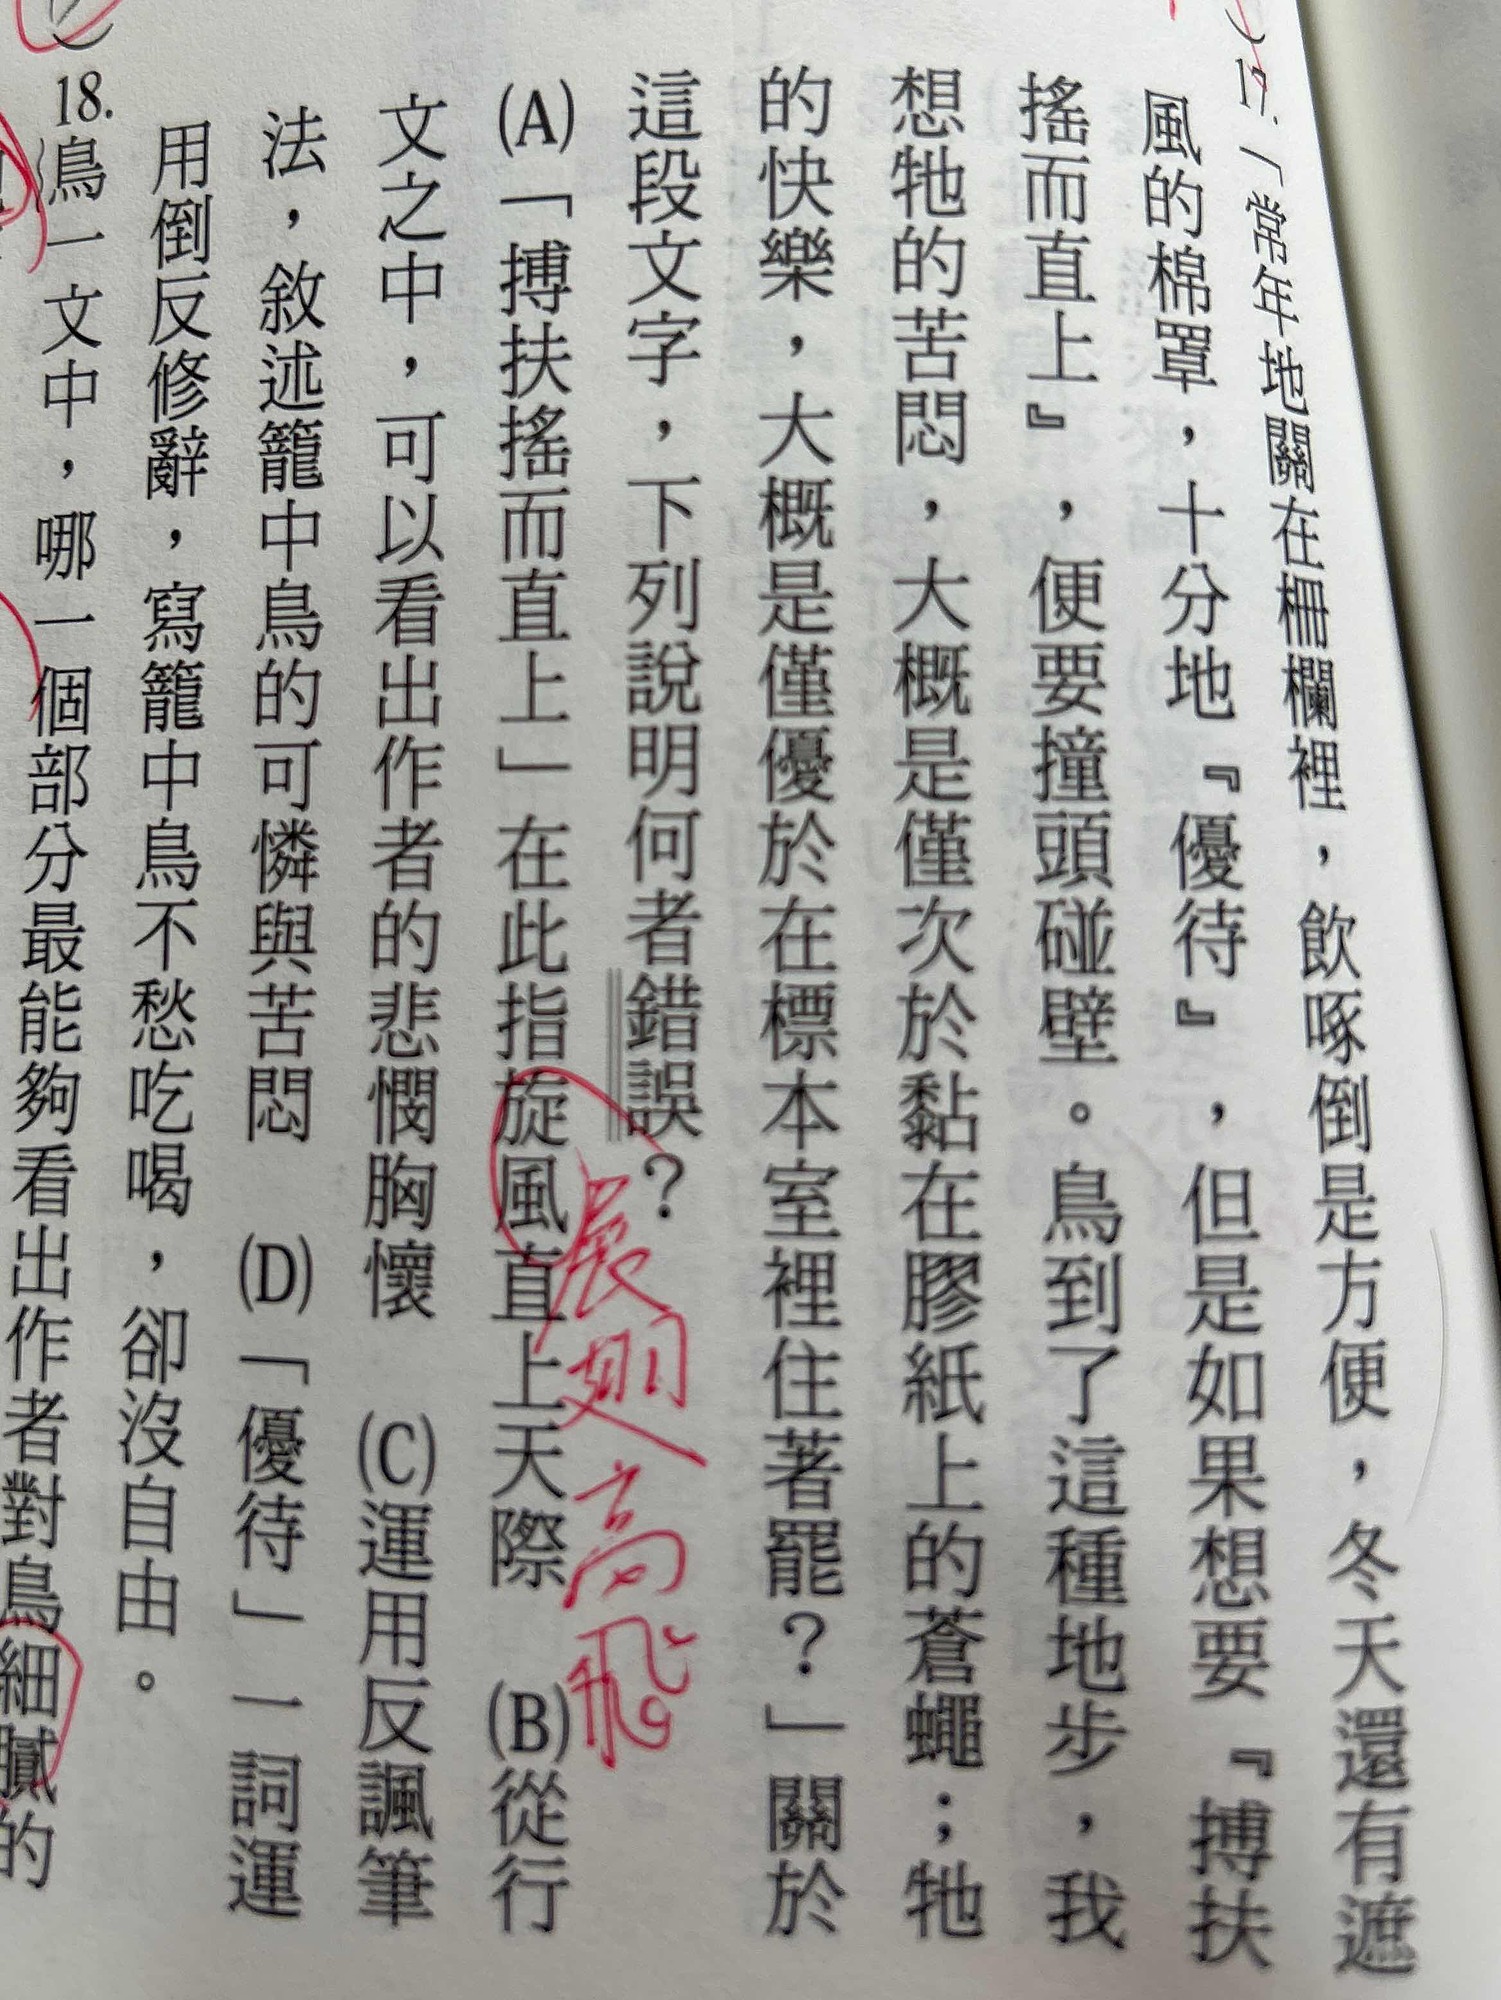 17.「常年地關在柵欄裡，飲啄倒是方便，冬天還有遮
風的棉罩，十分地『優待』，但是如果想要『搏扶
搖而直上』，便要撞頭碰壁。鳥到了這種地步，我
想牠的苦悶，大概是僅次於黏在膠紙上的蒼蠅；牠
的快樂，大概是僅優於在標本室裡住著罷？」關於
這段文字，下列說明何者錯誤？
展翅高飛
(A)「搏扶搖而直上」在此指旋風直上天際 (B)從行
文之中，可以看出作者的悲憫胸懷 (C)運用反諷筆
法，敘述籠中鳥的可憐與苦悶 (D)「優待」一詞運
用倒反修辭，寫籠中鳥不愁吃喝，卻沒自由。
18.鳥一文中，哪一個部分最能夠看出作者對鳥細膩的